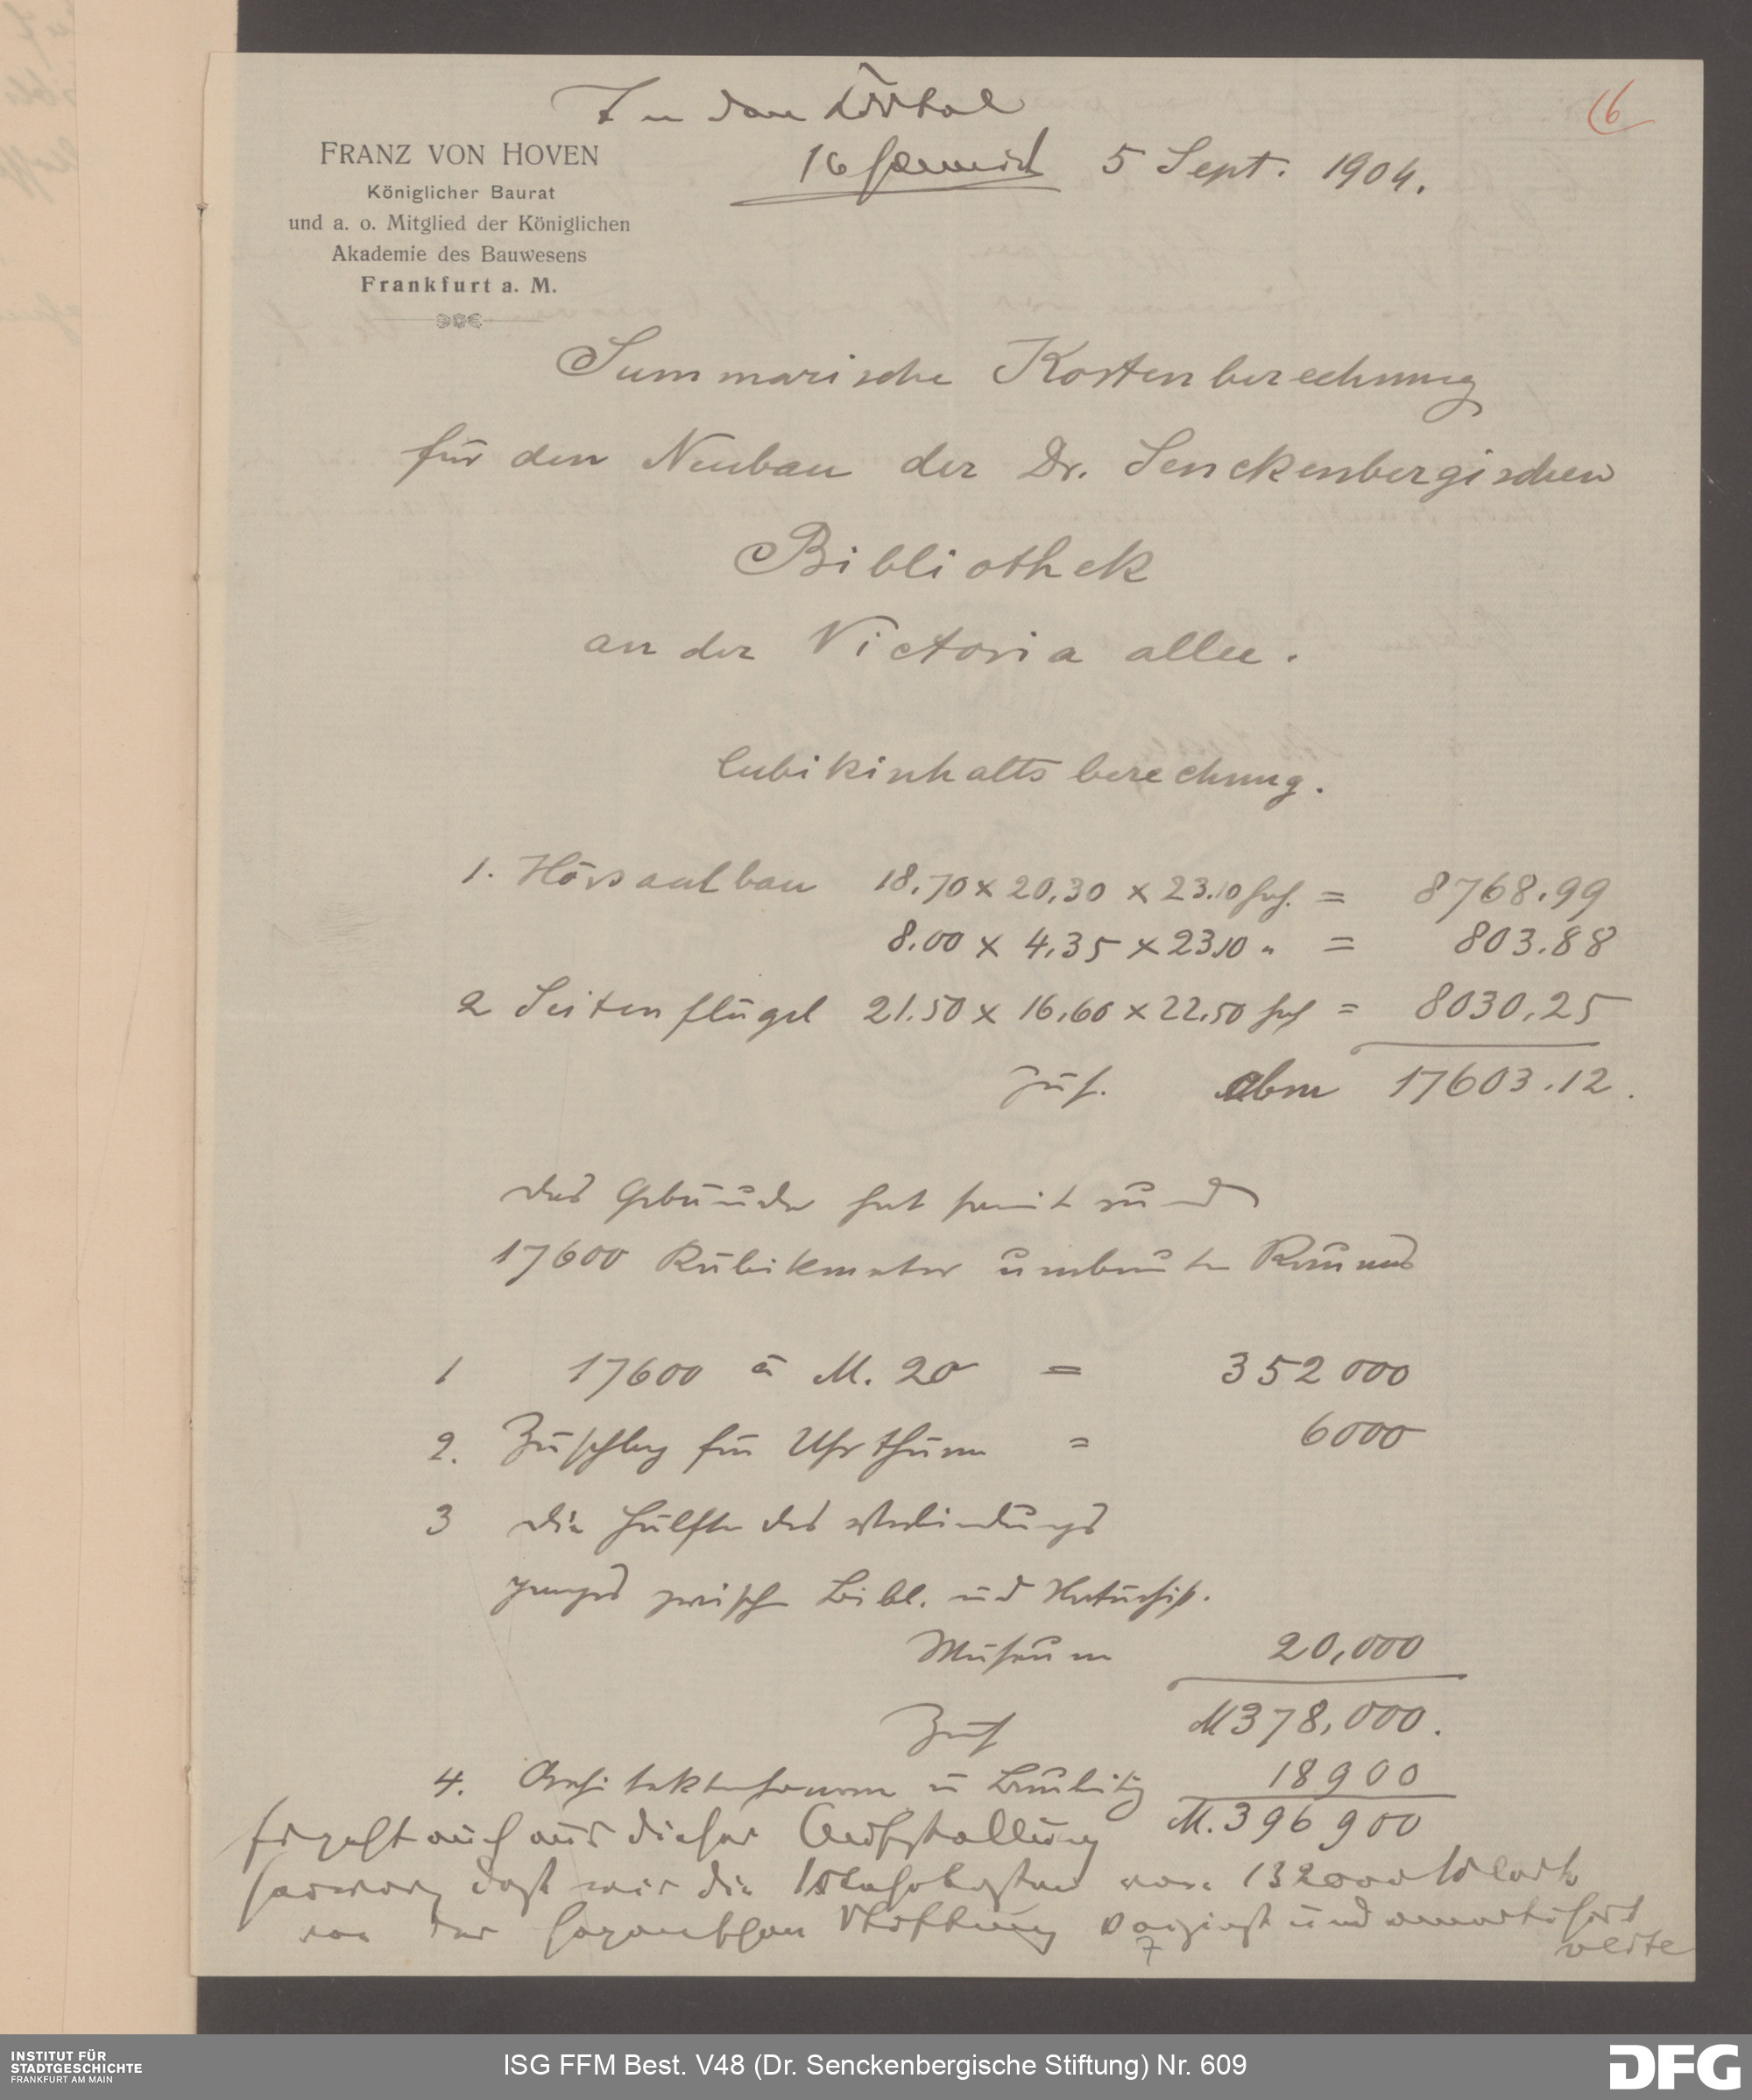 6
FRANZ VON HOVEN
Königlicher Baurat
und a. o. Mitglied der Königlichen
Akademie des Bauwesens
Frankfurt a. M.
5 Sept. 1904.
Summarische Kostenberechnung
für den Neubau der Dr. Senckenbergischen
Bibliothek
an der Victoria allee.
Cubikinhaltsberechnung.
1. Hörsaalbau 18.70 x 20,30 x 23.10 = 8768.99
8.00 x 4,35 x 23.10 " = 803.88
2 Seitenflügel 21.50 x 16,60 x 22,50 = 8030,25
Zus. cbm 17603.12.
das Gebäude hat somit rund
17600 Kubikmeter umbauten Raumes
1 17600 à M. 20 = 352000
2. Zuschlag für Uhrthurm = 6000
3 die Hälfte des Verbindungs
ganges zwisch Bibl. und Naturhist.
Museum 20,000
Zus M 378,000.
4. Architektenhonorar u Bauleitg 18900
M. 396900
Es geht auch aus dieser Aufstellung
hervor, daß wir die Mehrkosten von 132000 Mark
von der Stiftung verzinst und amortisirt
INSTITUT FÜR
STADTGESCHICHTE
FRANKFURT AM MAIN
ISG FFM Best. V48 (Dr. Senckenbergische Stiftung) Nr. 609
DFG